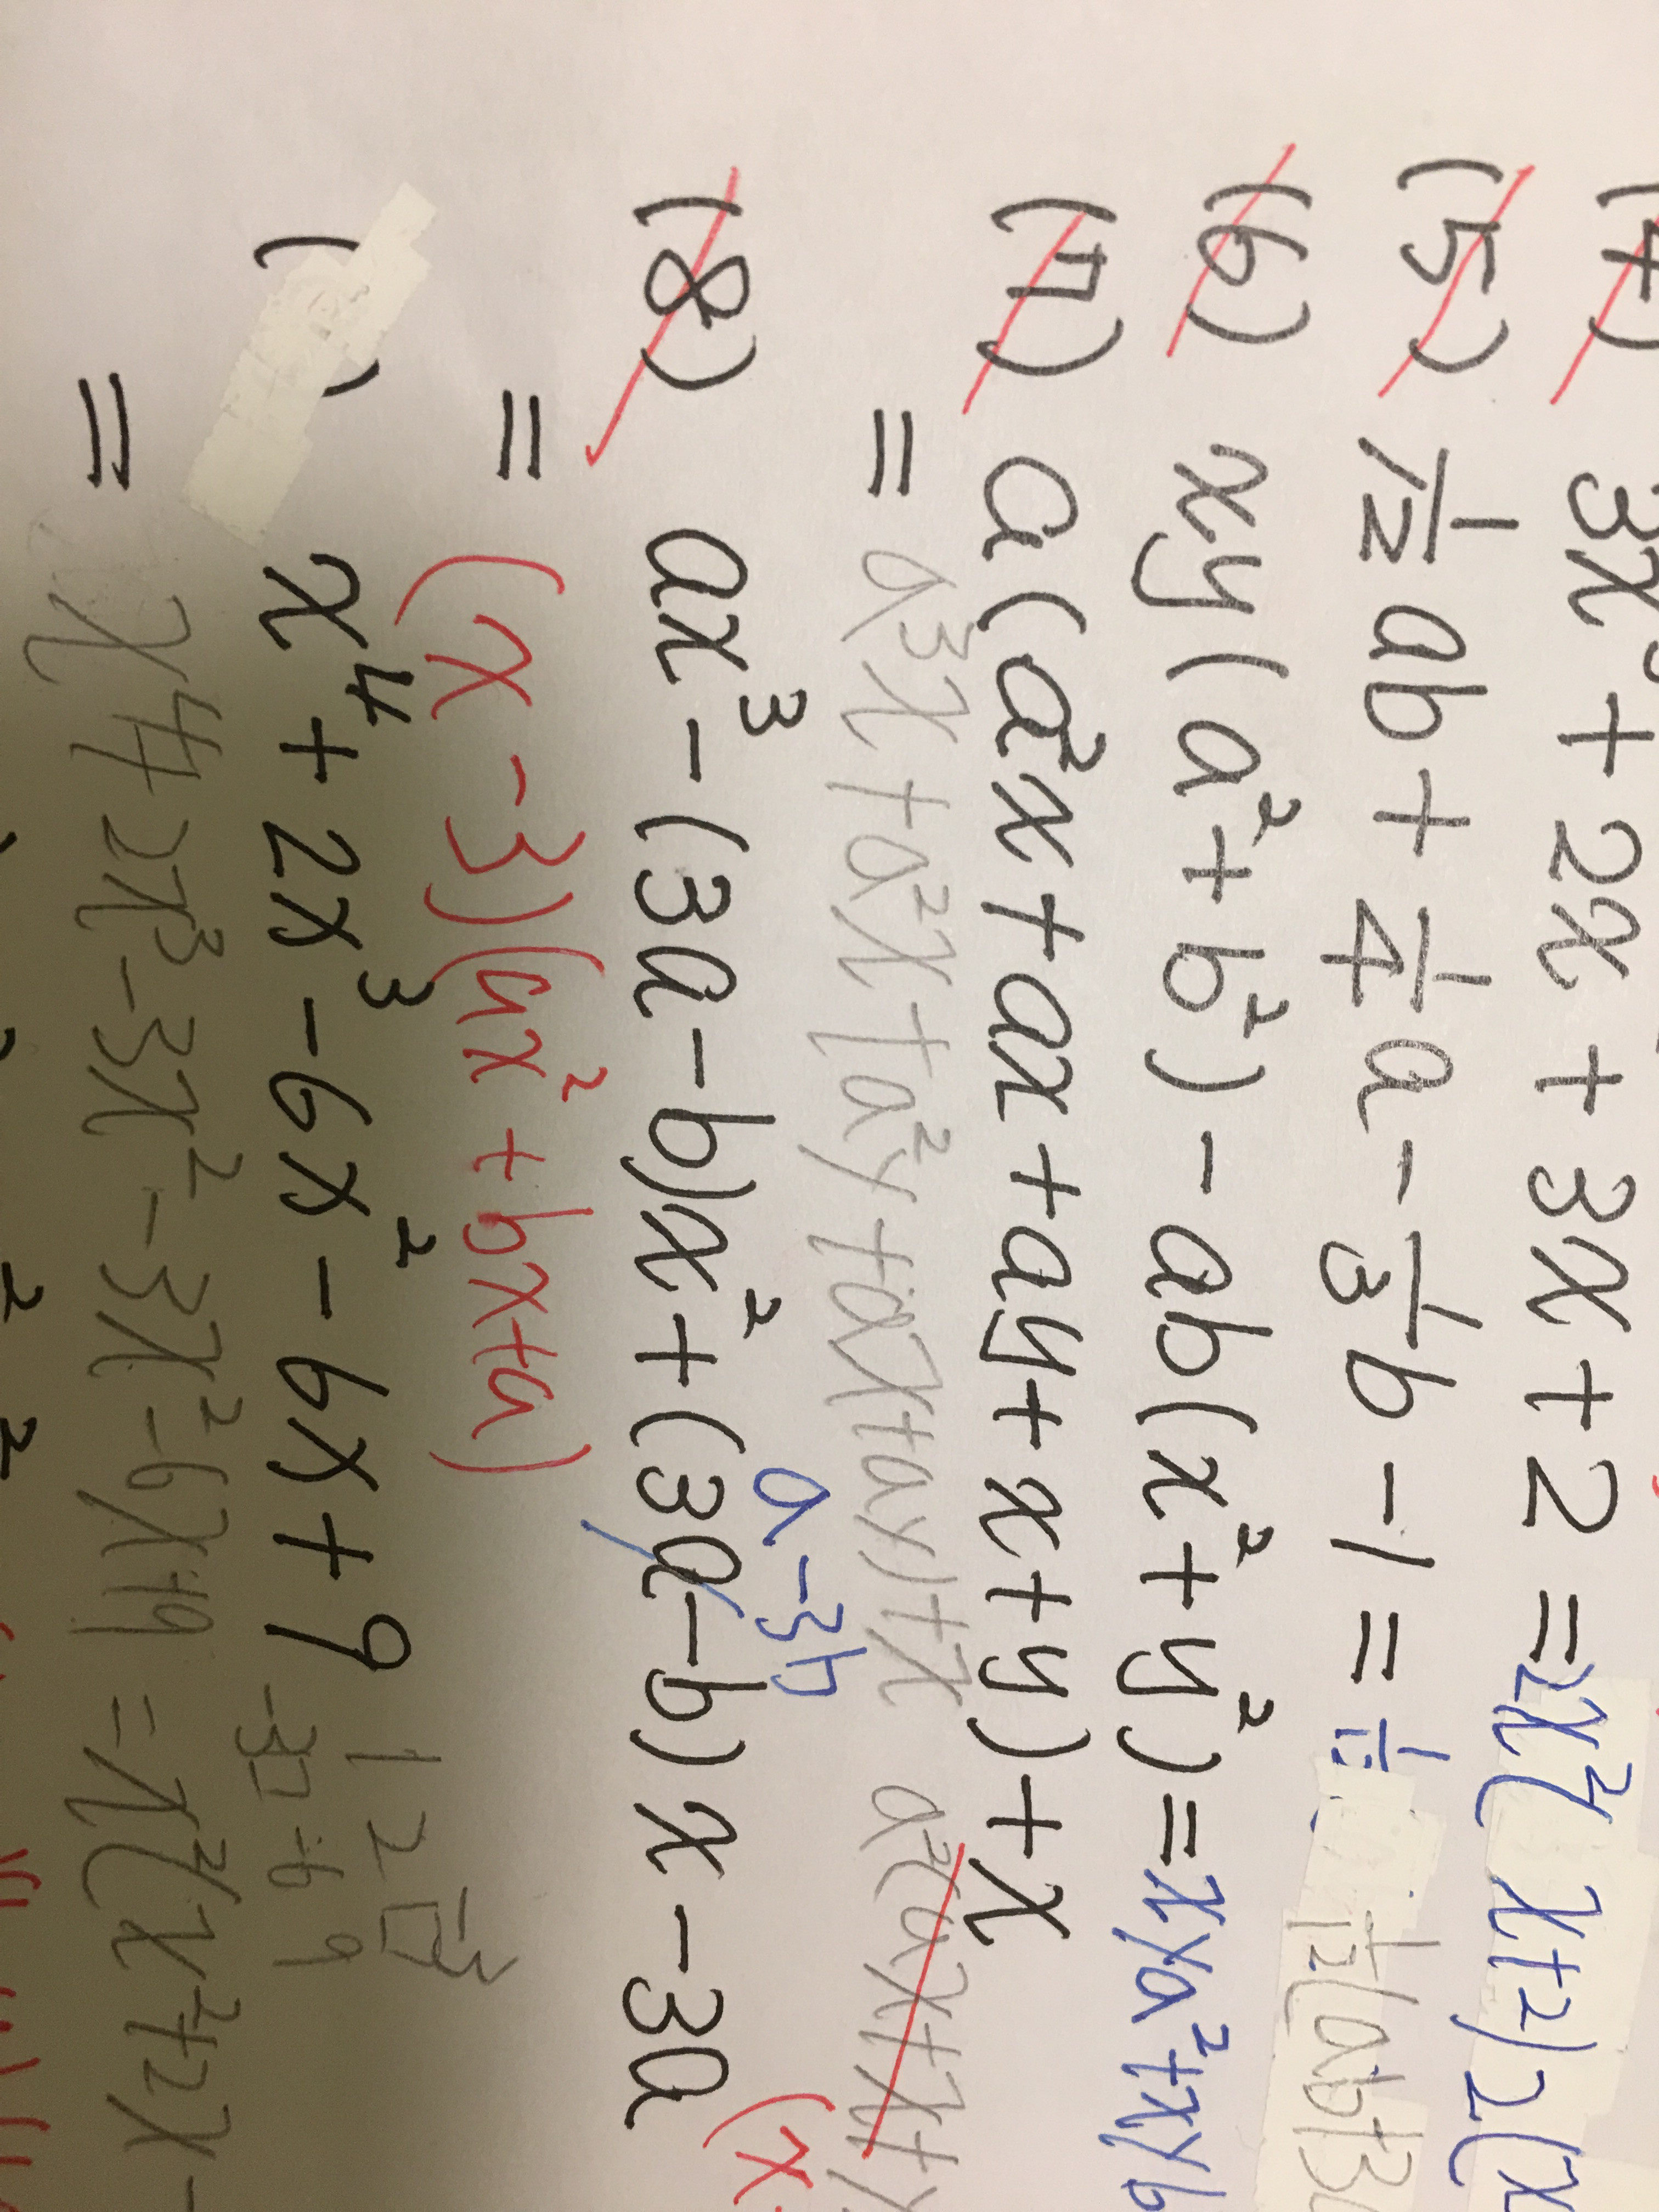 (4) 3x³+2x+3x+2=2x²(x+2)2(x
(5) 1/12ab+1/4a-1/3b-1=1/1 1/12(ab+3
(6) xy(a²+b²)-ab(x²+y²)=xya²+xyb
(7) a(a²x+ax+ay+x+y)+x
=a³x+a²x+a²y+ax+ay+x a²(ax+x+y
(x
a-3b
(8) ax³-(3a-b)x²+(3a-b)x-3a
=(x-3)(ax²+bx+a)
1 2 -3
( ) x⁴+2x³-6x²-6x+9
-3 -6 9
=x⁴+2x³-3x²-3x²-6x+9=x²(x²+2x-
2 2